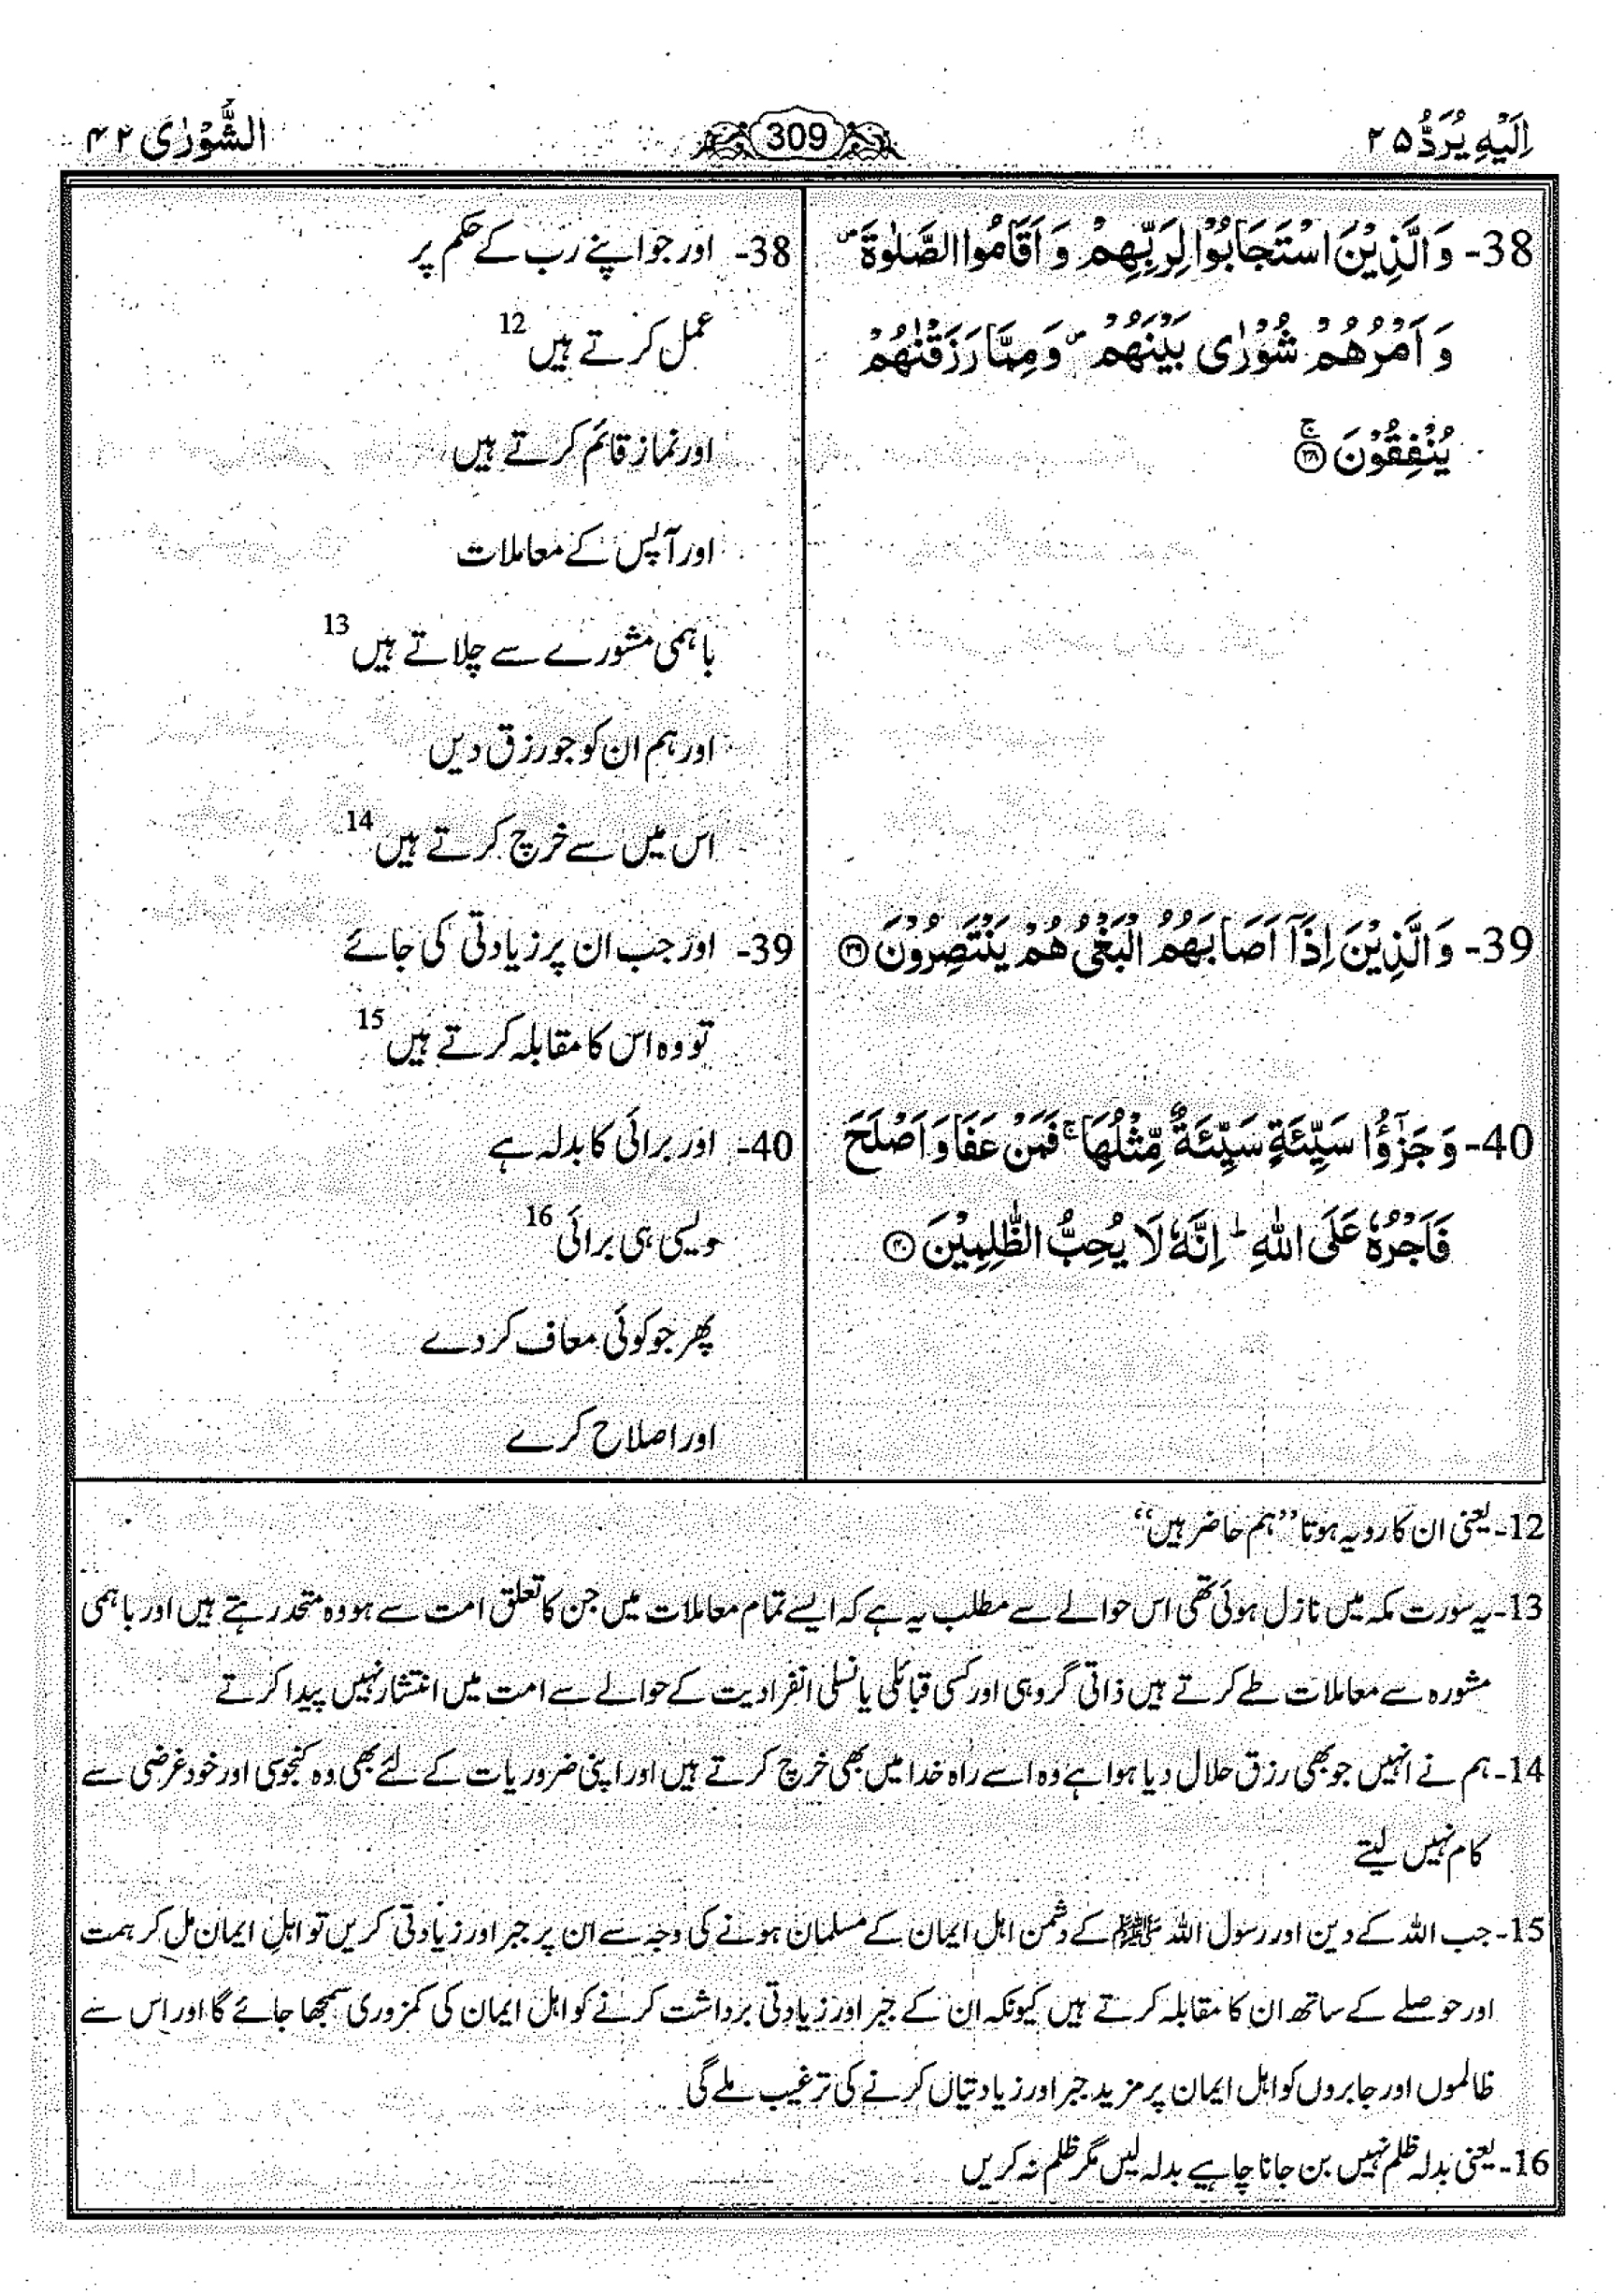 اِلَيْهِ يُرَدُّ ۲۵
309
الشُّوْرٰى ۴۲
38- وَ الَّذِيْنَ اسْتَجَابُوْا لِرَبِّهِمْ وَ اَقَامُوا الصَّلٰوةَ ۪
وَ اَمْرُهُمْ شُوْرٰى بَيْنَهُمْ ۪ وَ مِمَّا رَزَقْنٰهُمْ
يُنْفِقُوْنَ ۚ ﴿۳۸﴾
39- وَ الَّذِيْنَ اِذَاۤ اَصَابَهُمُ الْبَغْيُ هُمْ يَنْتَصِرُوْنَ ﴿۳۹﴾
40- وَ جَزٰٓؤُا سَيِّئَةٍ سَيِّئَةٌ مِّثْلُهَا ۚ فَمَنْ عَفَا وَ اَصْلَحَ
فَاَجْرُهٗ عَلَى اللّٰهِ ؕ اِنَّهٗ لَا يُحِبُّ الظّٰلِمِيْنَ ﴿۴۰﴾
38- اور جو اپنے رب کے حکم پر
عمل کرتے ہیں 12
اور نماز قائم کرتے ہیں
اور آپس کے معاملات
باہمی مشورے سے چلاتے ہیں 13
اور ہم ان کو جو رزق دیں
اس میں سے خرچ کرتے ہیں 14
39- اور جب ان پر زیادتی کی جائے
تو وہ اس کا مقابلہ کرتے ہیں 15
40- اور برائی کا بدلہ ہے
ویسی ہی برائی 16
پھر جو کوئی معاف کر دے
اور اصلاح کرے
12- یعنی ان کا رویہ ہوتا ’’ہم حاضر ہیں‘‘
13- یہ سورت مکہ میں نازل ہوئی تھی اس حوالے سے مطلب یہ ہے کہ ایسے تمام معاملات میں جن کا تعلق امت سے ہو وہ متحد رہتے ہیں اور باہمی
مشورہ سے معاملات طے کرتے ہیں ذاتی گروہی اور کسی قبائلی یا نسلی انفرادیت کے حوالے سے امت میں انتشار نہیں پیدا کرتے
14- ہم نے انہیں جو بھی رزق حلال دیا ہوا ہے وہ اسے راہ خدا میں بھی خرچ کرتے ہیں اور اپنی ضروریات کے لئے بھی وہ کنجوسی اور خود غرضی سے
کام نہیں لیتے
15- جب اللہ کے دین اور رسول اللہ ﷺ کے دشمن اہل ایمان کے مسلمان ہونے کی وجہ سے ان پر جبر اور زیادتی کریں تو اہلِ ایمان مل کر ہمت
اور حوصلے کے ساتھ ان کا مقابلہ کرتے ہیں کیونکہ ان کے جبر اور زیادتی برداشت کرنے کو اہل ایمان کی کمزوری سمجھا جائے گا اور اس سے
ظالموں اور جابروں کو اہل ایمان پر مزید جبر اور زیادتیاں کرنے کی ترغیب ملے گی
16- یعنی بدلہ ظلم نہیں بن جانا چاہیے بدلہ لیں مگر ظلم نہ کریں